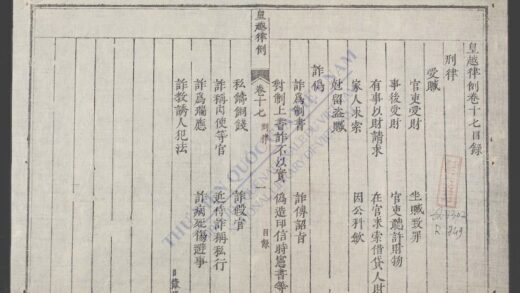 皇越律例卷十七目錄
刑律
受贓
官吏受財 坐贓致罪
事後受財 官吏聽許財物
有事以財請求 在官求索借貸人財
家人求索 因公科斂
尅留盜贓
詐偽
詐為制書 詐傳詔旨
對制上書詐不以實 偽造印信時憲書等
皇越律例 卷十七 刑律 一 目錄
私鑄銅錢 詐假官
詐稱內使等官 近侍詐稱私行
詐為瑞應 詐病死傷避事
詐教誘人犯法
目錄
THƯ VIỆN QUỐC GIA VIỆT NAM
NATIONAL LIBRARY OF VIETNAM